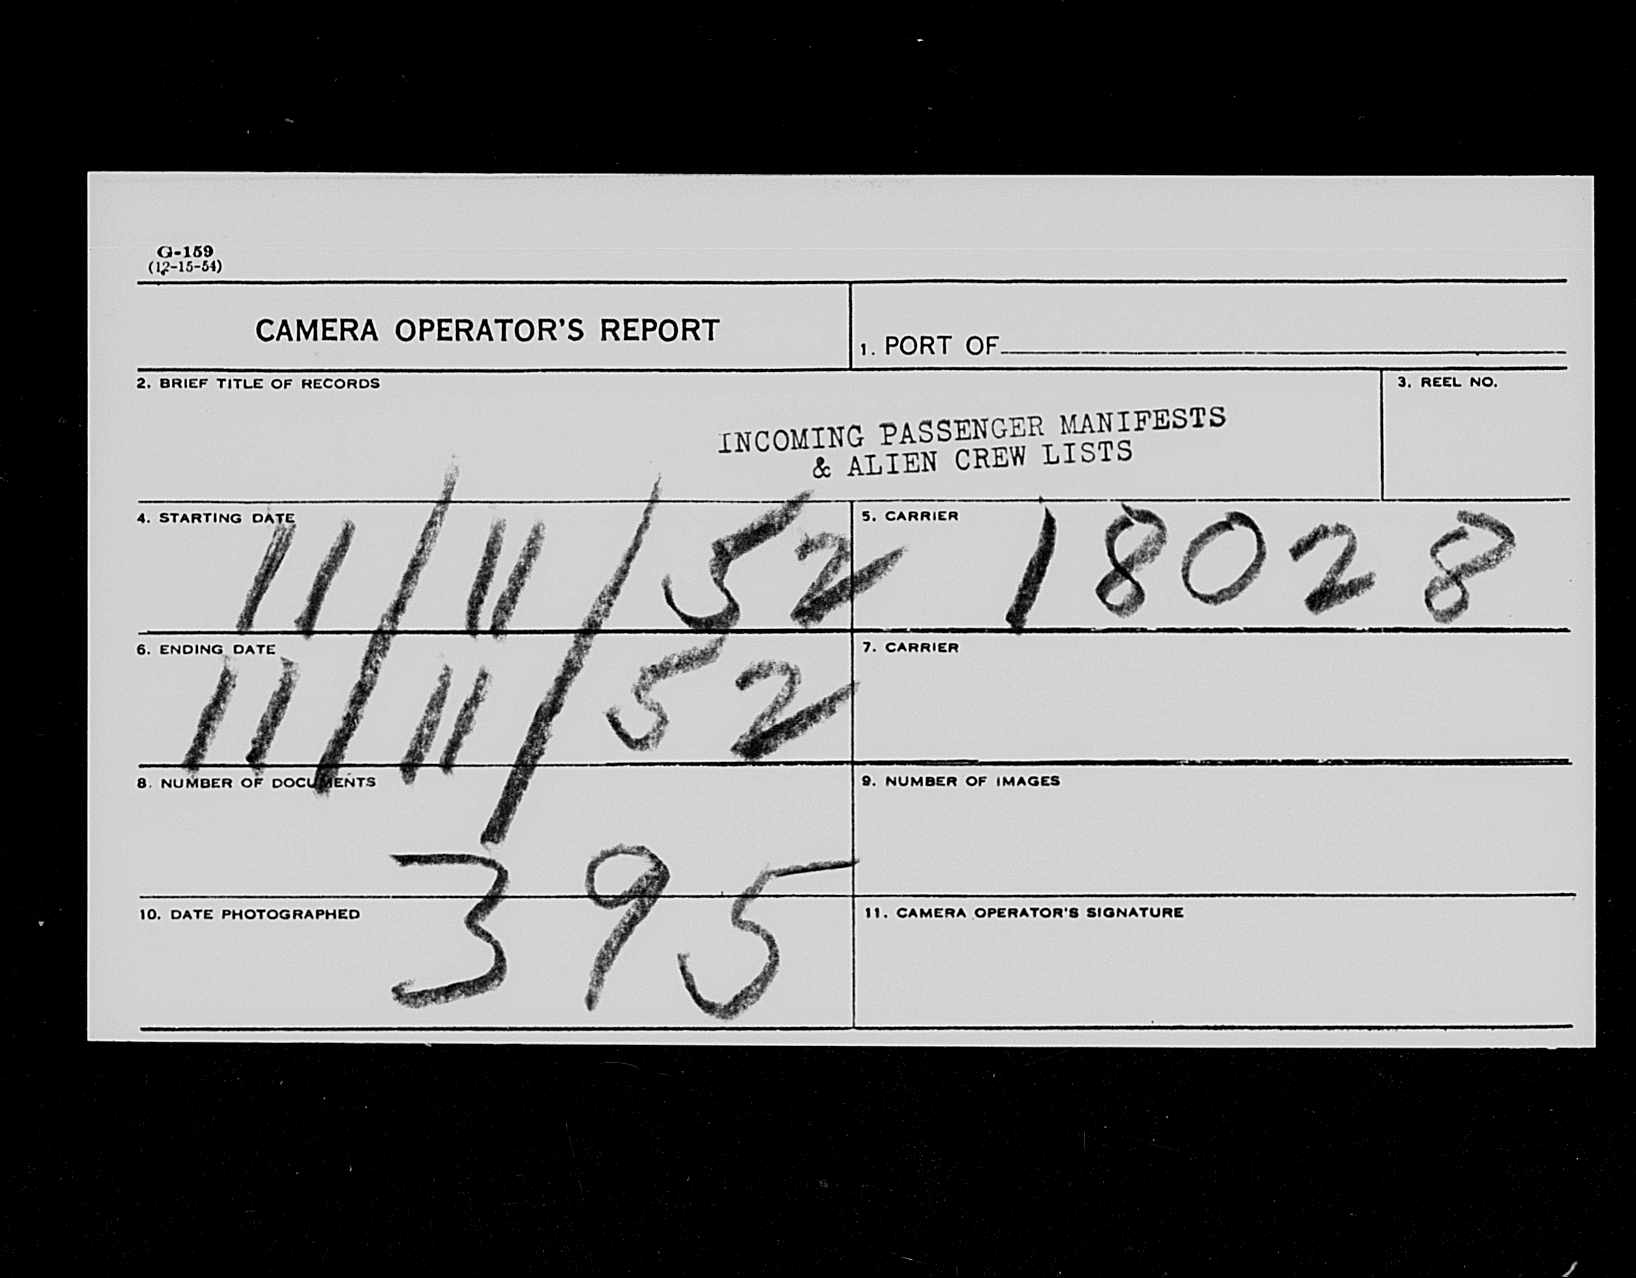 G-159
(12-15-54)
CAMERA OPERATOR'S REPORT
1. PORT OF
2. BRIEF TITLE OF RECORDS
3. REEL NO.
INCOMING PASSENGER MANIFESTS
& ALIEN CREW LISTS
4. STARTING DATE
11/11/52
5. CARRIER
18028
6. ENDING DATE
11/11/52
7. CARRIER
8. NUMBER OF DOCUMENTS
9. NUMBER OF IMAGES
395
10. DATE PHOTOGRAPHED
11. CAMERA OPERATOR'S SIGNATURE